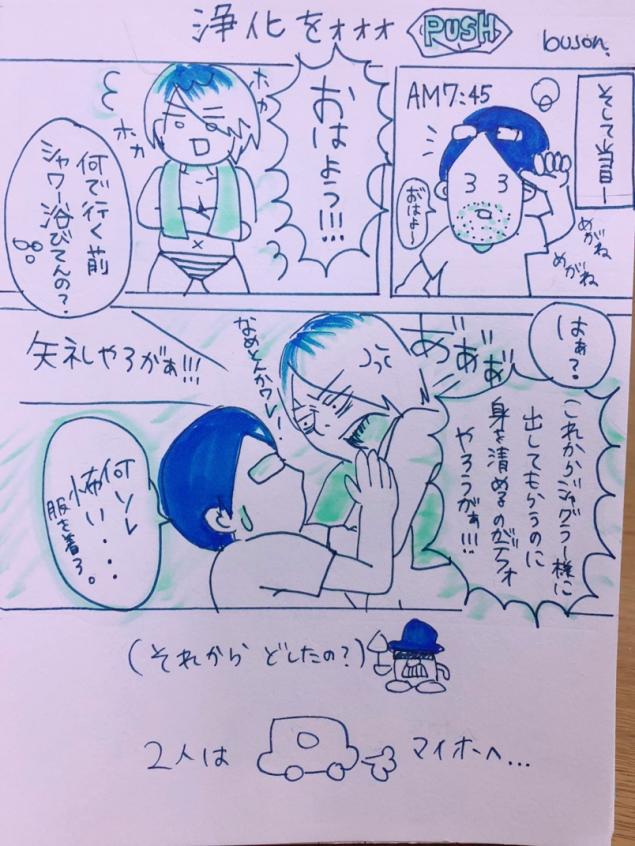 浄化をォォォ
PUSH
buson.
そして当日ー
AM7:45
おはよ〜
めがね
めがね
おはよう!!!
ホカ
ホカ
何で行く前
シャワー浴びてんの?
はぁ?
これからジャグラー様に
出してもらうのに
身を清めるのがデフォ
やろうがぁ!!!
あ゛あ゛あ゛
なめとんかワレ!
失礼やろがぁ!!!
何ソレ
怖い・・・
服を着ろ。
(それから どしたの?)
2人は
マイホへ...